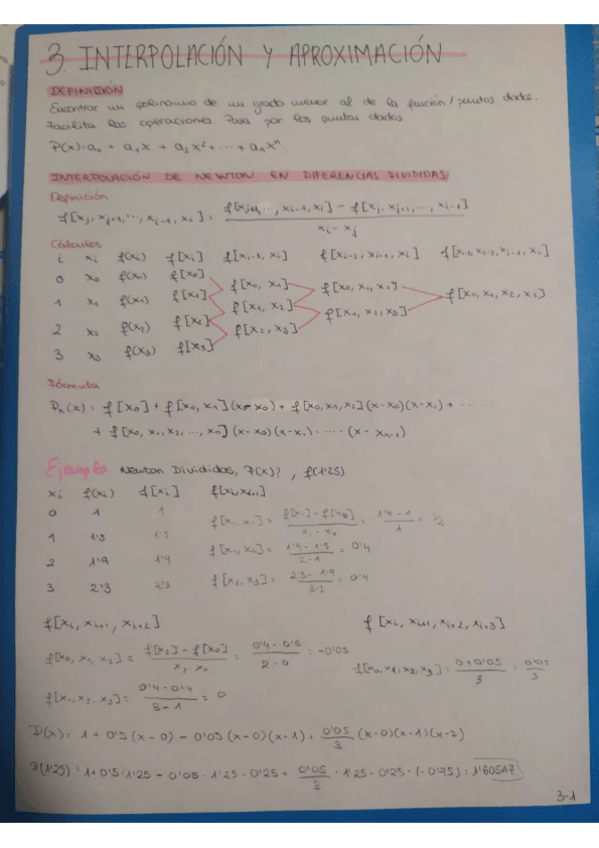 3. INTERPOLACIÓN Y APROXIMACIÓN
DEFINICIÓN
Encontrar un polinomio de un grado menor al de la función/puntos dados.
Facilita las operaciones. Pasa por los puntos dados
P(x) = a₀ + a₁x + a₂x² + ... + aₙxⁿ
INTERPOLACIÓN DE NEWTON EN DIFERENCIAS DIVIDIDAS
Definición
f[xj, xj+1, ..., xi-1, xi] = (f[xj+1, ..., xi-1, xi] - f[xj, xj+1, ..., xi-1]) / (xi - xj)
Cálculos
i xi f(xi) f[xi] f[xi-1, xi] f[xi-2, xi-1, xi] f[xi-3, xi-2, xi-1, xi]
0 x₀ f(x₀) f[x₀]
f[x₀, x₁]
1 x₁ f(x₁) f[x₁] f[x₀, x₁, x₂]
f[x₁, x₂] f[x₀, x₁, x₂, x₃]
2 x₂ f(x₂) f[x₂] f[x₁, x₂, x₃]
f[x₂, x₃]
3 x₃ f(x₃) f[x₃]
Fórmula
Pₙ(x) = f[x₀] + f[x₀, x₁](x-x₀) + f[x₀, x₁, x₂](x-x₀)(x-x₁) + ......
+ f[x₀, x₁, x₂, ..., xₙ](x-x₀)(x-x₁)·····(x-xₙ₋₁)
Ejemplo Newton Divididas, P(x)?, f(1'25)
xi f(xi) f[xi] f[xi, xi+1]
0 1 1 f[x₀, x₁] = (f[x₁] - f[x₀]) / (x₁ - x₀) = (1'4 - 1) / 1 = 1/2
1 1'5 1'5 f[x₁, x₂] = (1'9 - 1'5) / (2-1) = 0'4
2 1'9 1'9
3 2'3 2'3 f[x₂, x₃] = (2'3 - 1'9) / (3-2) = 0'4
f[xi, xi+1, xi+2] f[xi, xi+1, xi+2, xi+3]
f[x₀, x₁, x₂] = (f[x₂] - f[x₀]) / (x₂ - x₀) = (0'4 - 0'5) / (2-0) = -0'05
f[x₀, x₁, x₂, x₃] = (0+0'05) / 3 = 0'05 / 3
f[x₁, x₂, x₃] = (0'4 - 0'4) / (3-1) = 0
P(x) = 1 + 0'5(x-0) - 0'05(x-0)(x-1) + 0'05/3 (x-0)(x-1)(x-2)
P(1'25) = 1 + 0'5·1'25 - 0'05·1'25·0'25 + 0'05/3·1'25·0'25·(-0'75) = 1'60547
3-1